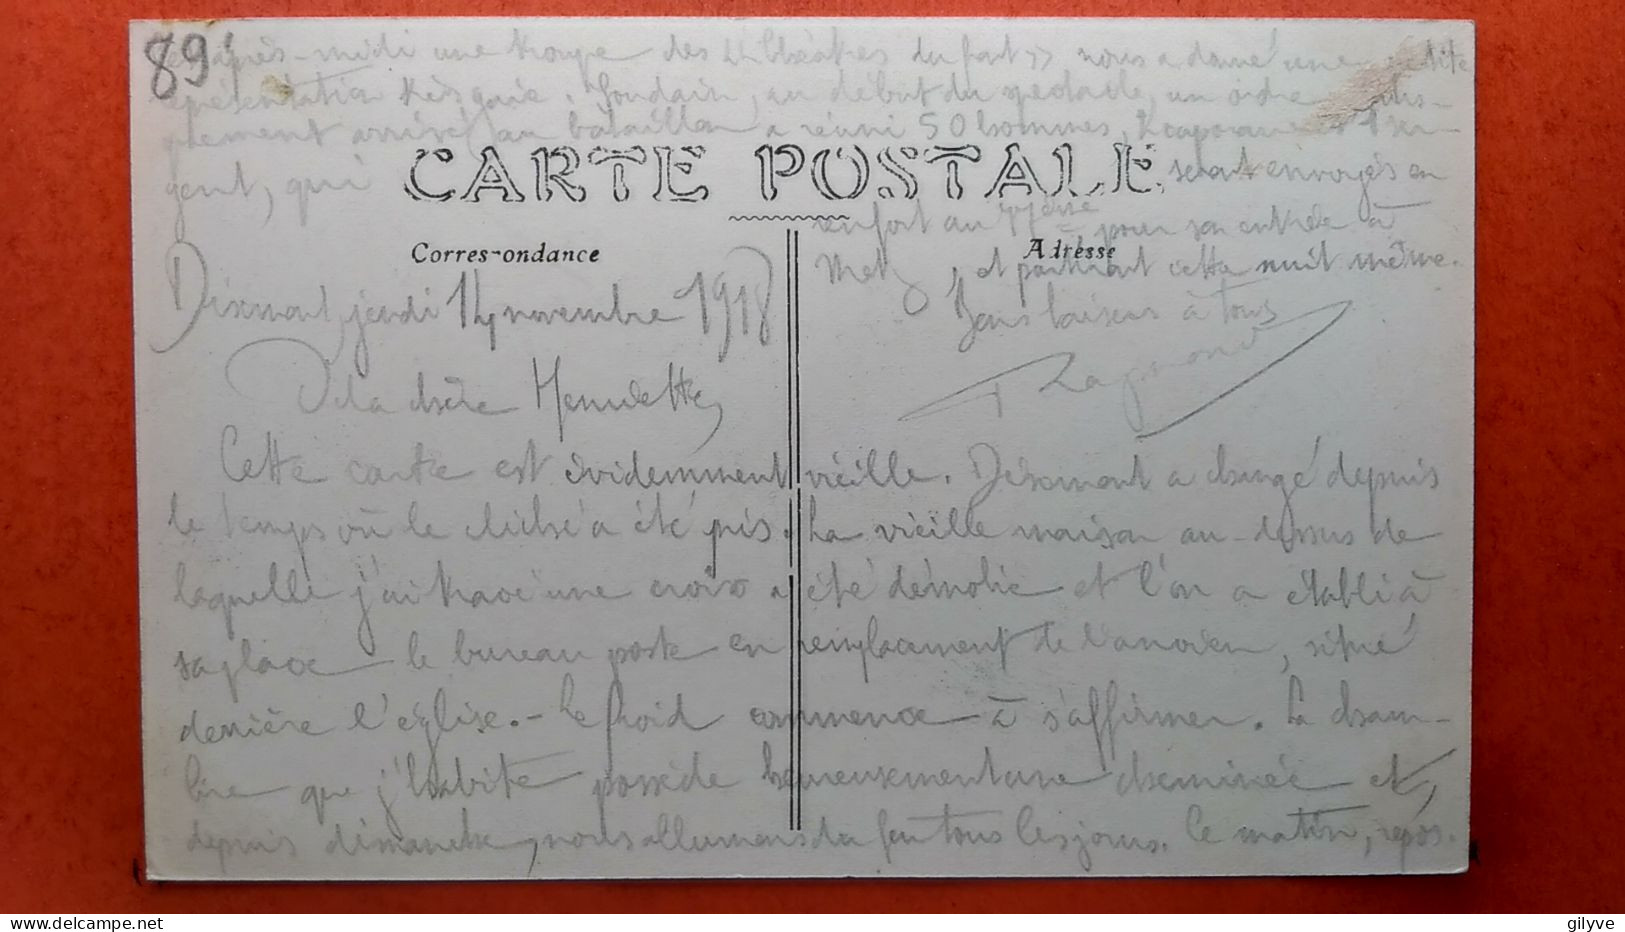 89
Dixmont, jeudi 14 novembre 1918
Ma chère Henriette,
Cette carte est évidemment vieille. Dixmont a changé depuis
le temps où le cliché a été pris. La vieille maison au-dessus de
laquelle j'ai tracé une croix a été démolie et l'on a établi à
sa place le bureau poste en remplacement de l'ancien, situé
derrière l'église. - Le froid commence à s'affirmer. La cham-
bre que j'habite possède heureusement une cheminée et,
depuis dimanche, nous allumons du feu tous les jours. Ce matin, repos.
après-midi une troupe des "théâtres du front" nous a donné une petite
représentation très gaie. Soudain, au début du spectacle, un ordre
arrivé au bataillon a réuni 50 hommes, caporaux et 1 ser-
gent, qui seront envoyés en
renfort au pour son entrée à
Metz, et partiront cette nuit même.
Bons baisers à tous
Raymond
CARTE POSTALE
Correspondance
Adresse
gilyve